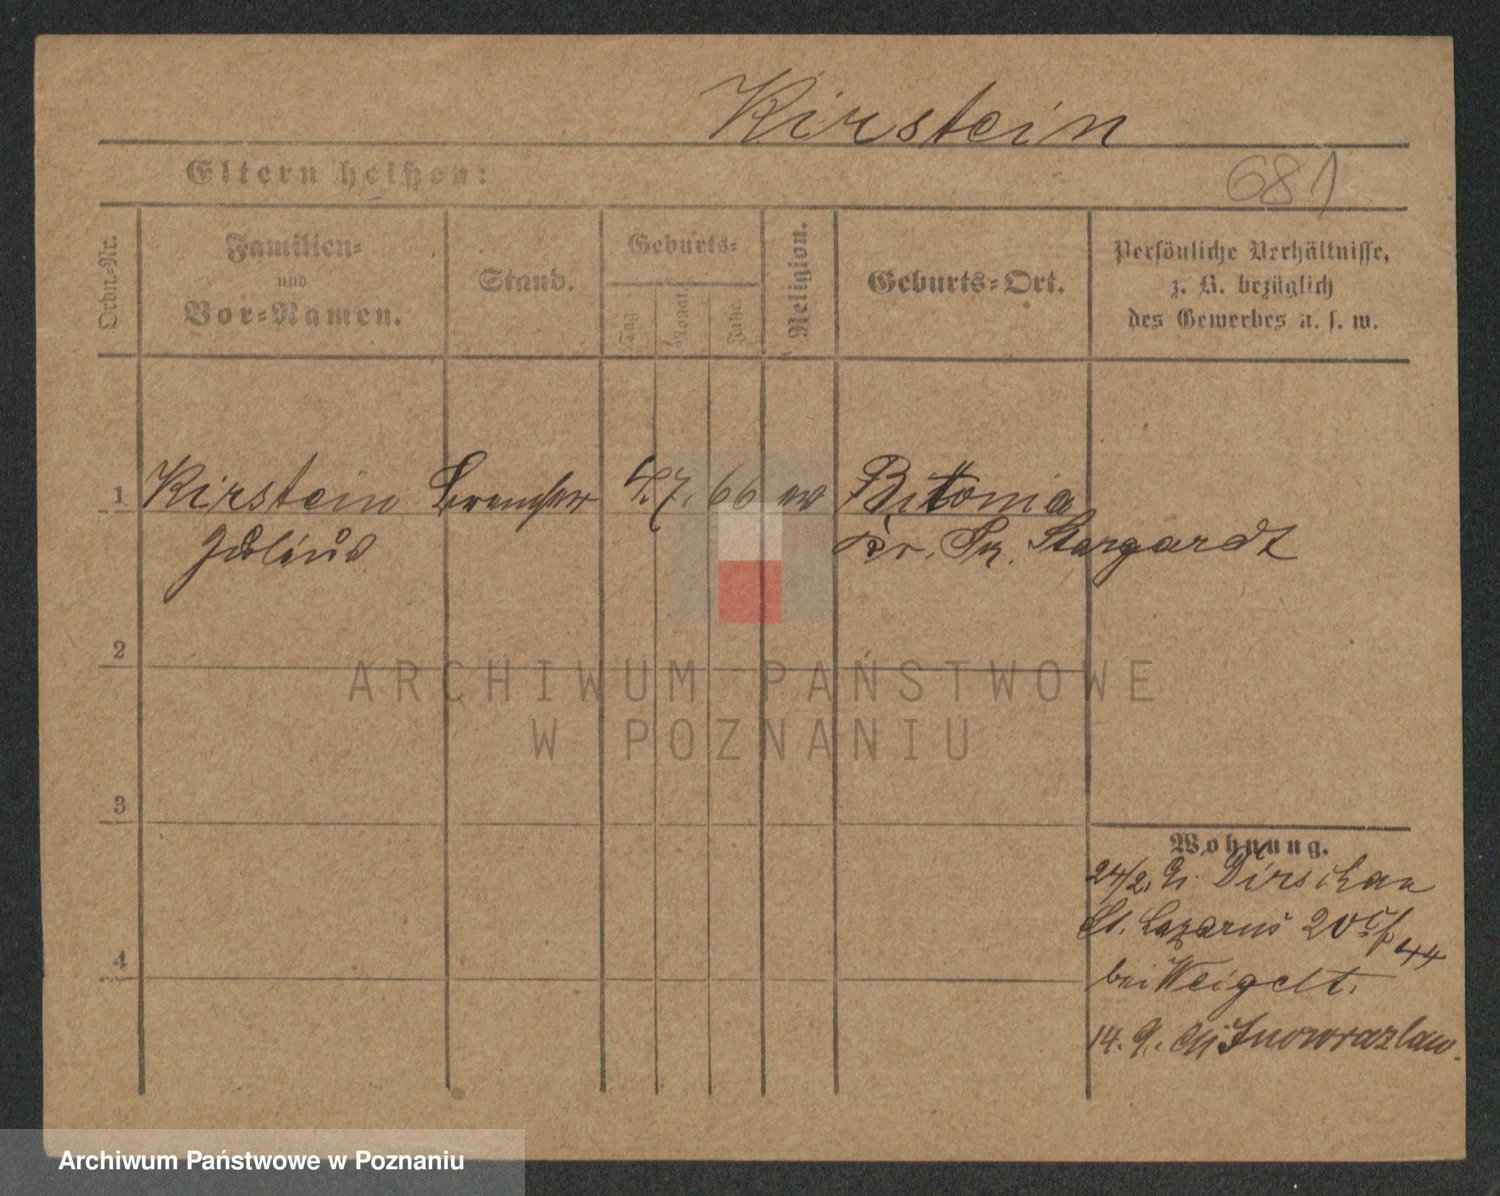 Kirstein
Eltern heißen:
681
Ordn.-Nr.
Familien-
und
Vor-Namen.
Stand.
Geburts-
Tag
Monat
Jahr.
Religion.
Geburts-Ort.
Persönliche Verhältnisse,
z. B. bezüglich
des Gewerbes u. s. w.
1 Kirstein 4. 7. 66 ev Bitonia
Julius Kr. Pr. Stargardt
2
3
4
Wohnung.
24/2. Dirschau
St. Lazarus 20
44
bei Weigelt.
14. 9. Inowrazlaw.
ARCHIWUM PAŃSTWOWE
W POZNANIU
Archiwum Państwowe w Poznaniu